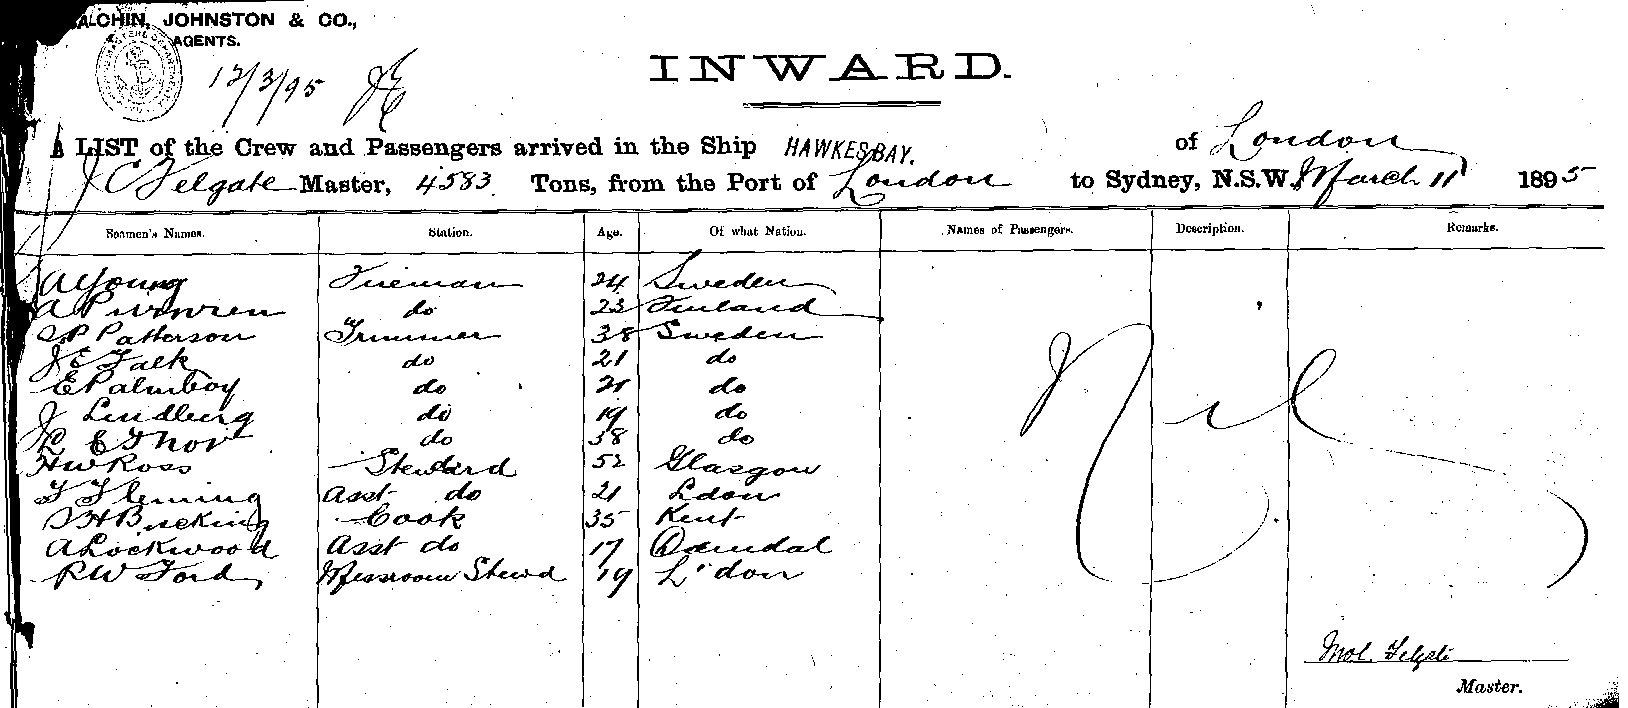 ALCHIN, JOHNSTON & CO.,
AGENTS.
12/3/95
INWARD.
A LIST of the Crew and Passengers arrived in the Ship HAWKESBAY. of London
J C Felgate Master, 4583 Tons, from the Port of London to Sydney, N.S.W. March 11 1895
Seamen's Names. Station. Age. Of what Nation. Names of Passengers. Description. Remarks.
A Young Fireman 24 Sweden
A do 23 Finland
Patterson Trimmer 38 Sweden
J E Falk do 21 do
E Palmboy do 21 do
J Lindberg do 19 do
E Thor do 38 do
H W Ross Steward 52 Glasgow
F Fleming Asst do 21 Ldon
H Bucking Cook 35 Kent
A Lockwood Asst do 17
R W Ford Messroom Stewd 19 L'don
Nil
Felgate
Master.